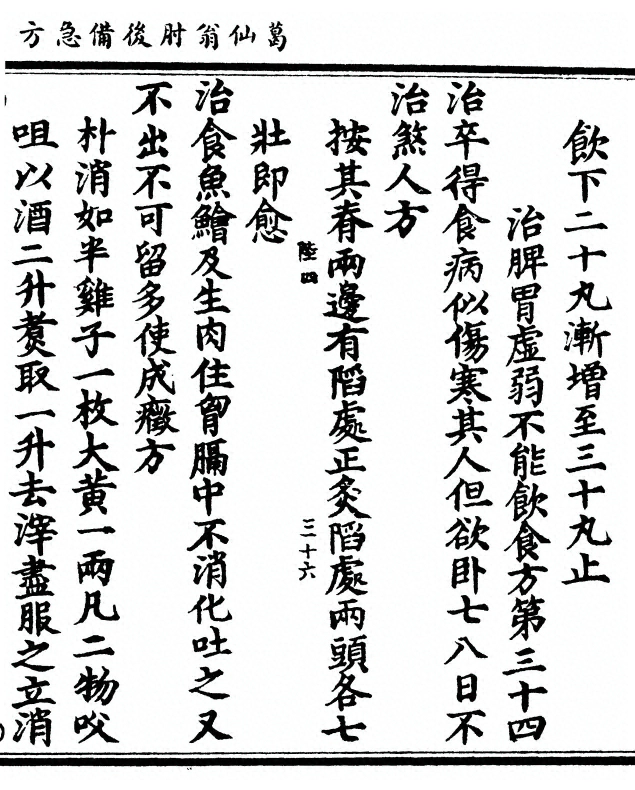 葛仙翁肘後備急方
飲下二十丸漸增至三十丸止
治脾胃虛弱不能飲食方第三十四
治卒得食病似傷寒其人但欲卧七八日不
治煞人方
按其脊兩邊有陷處正灸陷處兩頭各七
陸四
三十六
壯即愈
治食魚鱠及生肉住胷膈中不消化吐之又
不出不可留多使成癥方
朴消如半雞子一枚大黃一兩凡二物㕮
咀以酒二升煑取一升去滓盡服之立消